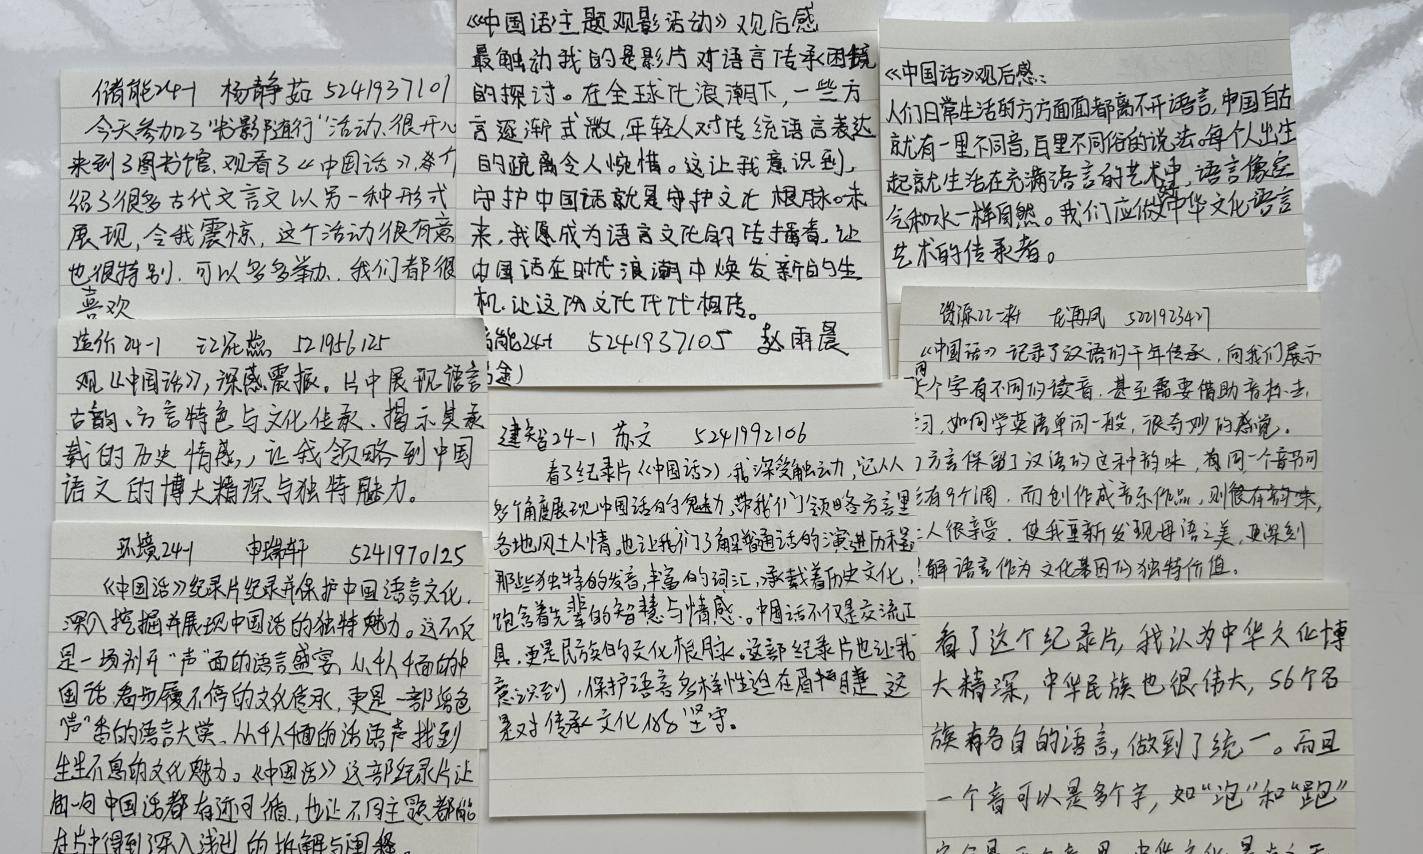 储能24-1 杨静茹 5241937101
今天参加了“光影随行”活动,很开心
来到了图书馆,观看了《中国话》,介
绍了很多古代文言文以另一种形式
展现,令我震惊,这个活动很有意
也很特别,可以多多举办,我们都很
喜欢
造价24-1 521956125
观《中国话》,深感震撼。片中展现语言
古韵、方言特色与文化传承、揭示其承
载的历史情感,让我领略到中国
语文的博大精深与独特魅力。
环境24-1 申瑞轩 5241970125
《中国话》纪录片纪录并保护中国语言文化,
深入挖掘并展现中国话的独特魅力。这不仅
是一场别开“声”面的语言盛宴,从4人4面的中
国话,看步履不停的文化传承,更是一部绘色
“声”香的语言大赏,从4人4面的话语声找到
生生不息的文化魅力。《中国话》这部纪录片让
每一句中国话都有迹可循,也让不同主题都能
在片中得到深入浅出的拆解与阐释。
《中国话主题观影活动》观后感
最触动我的是影片对语言传承困境
的探讨。在全球化浪潮下,一些方
言逐渐式微,年轻人对传统语言表达
的疏离令人惋惜。这让我意识到,
守护中国话就是守护文化根脉。未
来,我愿成为语言文化的传播者,让
中国话在时代浪潮中焕发新的生
机,让这份文化代代相传。
能24-1 5241937105 赵雨晨
金)
建智24-1 苏文 5241992106
看了纪录片《中国话》,我深受触动,它从
多个角度展现中国话的魅力,带我们领略方言里
各地风土人情。也让我们了解普通话的演进历程
那些独特的发音,丰富的词汇,承载着历史文化,
饱含着先辈的智慧与情感。中国话不仅是交流工
具,更是民族的文化根脉。这部纪录片也让我
意识到,保护语言多样性迫在眉睫,这
是对传承文化的坚守。
《中国话》观后感:
人们日常生活的方方面面都离不开语言,中国自古
就有一里不同音,百里不同俗的说法。每个人出生
起就生活在充满语言的艺术中,语言像空
气和水一样自然。我们应做对中华文化语言
艺术的传承者。
资源22-新 龙再凤 5221923427
《中国话》记录了汉语的千年传承,向我们展示
同
个字有不同的读音,甚至需要借助音标去
习,如同学英语单词一般,很奇妙的感觉。
方言保留了汉语的这种韵味,有同一个音节可
有9个调,而创作成音乐作品,则很有韵味,
人很享受,使我重新发现母语之美,更深刻
解语言作为文化基因的独特价值。
看了这个纪录片,我认为中华文化博
大精深,中华民族也很伟大,56个名
族有各自的语言,做到了统一。而且
一个音可以是多个字,如“泡”和“跑”